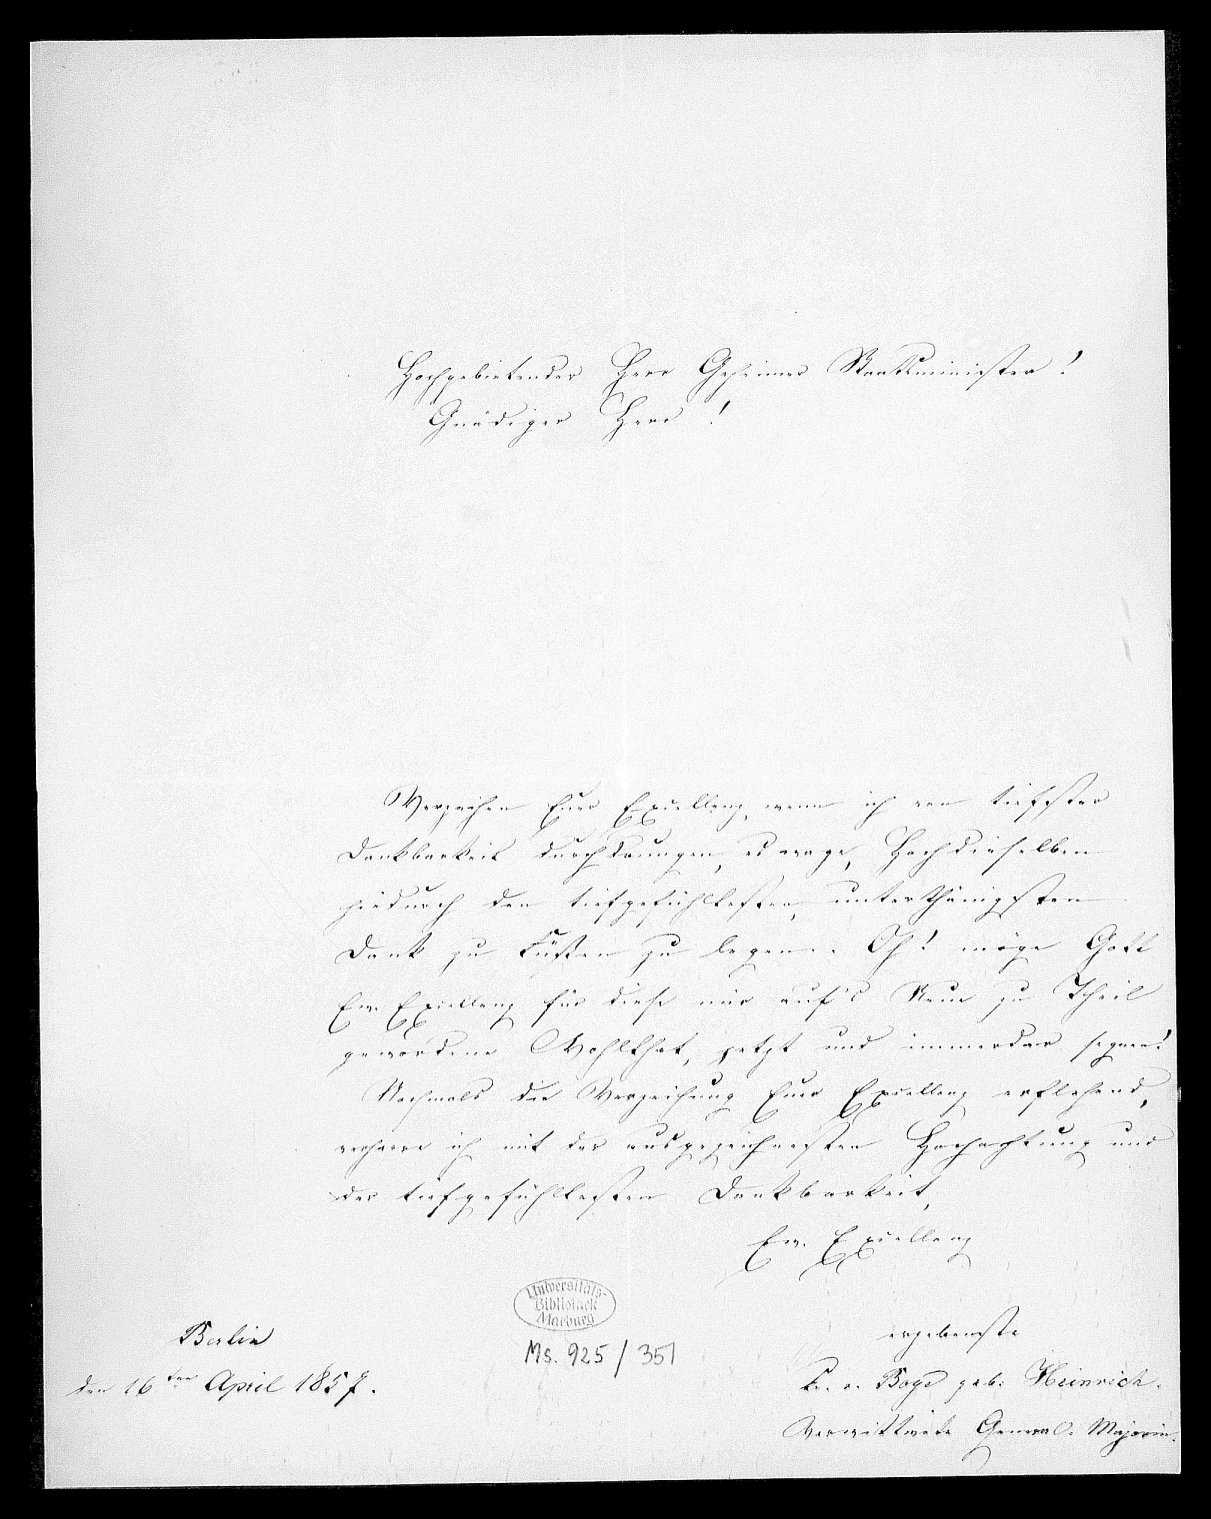 Hochgebietender Herr Geheimer Staatsminister!
Gnädiger Herr!
Verzeihen Euer Excellenz, wenn ich von tiefster
Dankbarkeit durchdrungen, es wage, Hochdieselben
hiedurch den tiefgefühltesten, unterthänigsten
Dank zu Füßen zu legen. Oh! möge Gott
Ew. Excellenz für diese mir auf's Neue zu Theil
gewordene Wohlthat, jetzt und immerdar segnen!
Nochmals die Verzeihung Euer Excellenz erflehend,
verharre ich mit der ausgezeichnetsten Hochachtung und
der tiefgefühltesten Dankbarkeit,
Ew. Excellenz
ergebenste
v. geb: Heinrich.
Verwittwete General-Majorin.
Berlin
den 16ten April 1857.
Universitäts-
Bibliothek
Marburg
Ms. 925/351